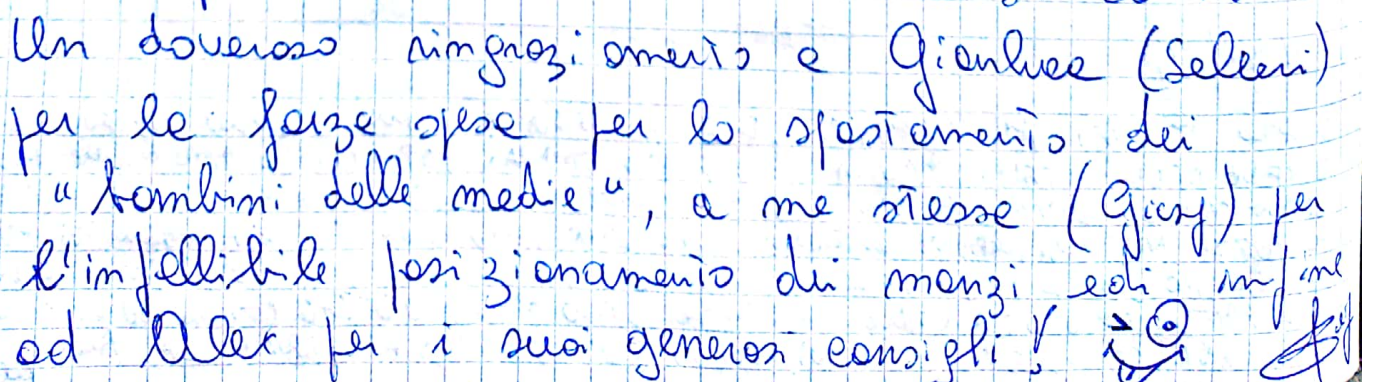 Un doveroso ringraziamento a Gianluca (Selleri)
per la forza spesa per lo spostamento dei
"bambini delle medie", a me stessa (Giusy) per
l'infallibile posizionamento dei manzi ed infine
ad Alex per i suoi generosi consigli!